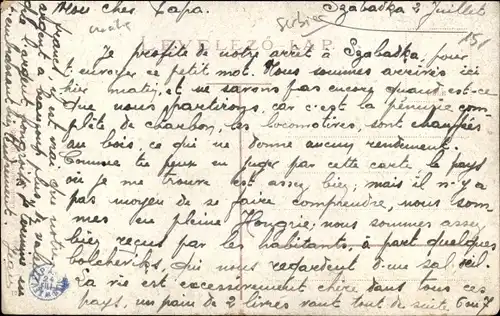 Mon cher Papa.
Szabadka 2 Juillet
Serbie
croate
151
LEVELEZŐ-LAP.
Je profite de notre arrêt à Szabadka, pour
t'envoyer ce petit mot. Nous sommes arrivés ici
hier matin, et ne savons pas encore quand est-ce
que nous partirons, car c'est la pénurie com-
plète de charbon, les locomotives, sont chauffées
au bois, ce qui ne donne aucun rendement.
Comme tu peux en juger par cette carte, le pays
où je me trouve est assez bien; mais il n'y a
pas moyen de se faire comprendre, nous som-
mes en pleine Hongrie. nous sommes assez
bien reçus par les habitants, à part quelques
bolcheviks, qui nous regardent d'un sal œil.
La vie est excessivement chère dans tous ces
pays, un pain de 2 livres vaut tout de suite 6 ou 7
francs, il est vrai que notre
argent a beaucoup plus de valeur
que l'argent